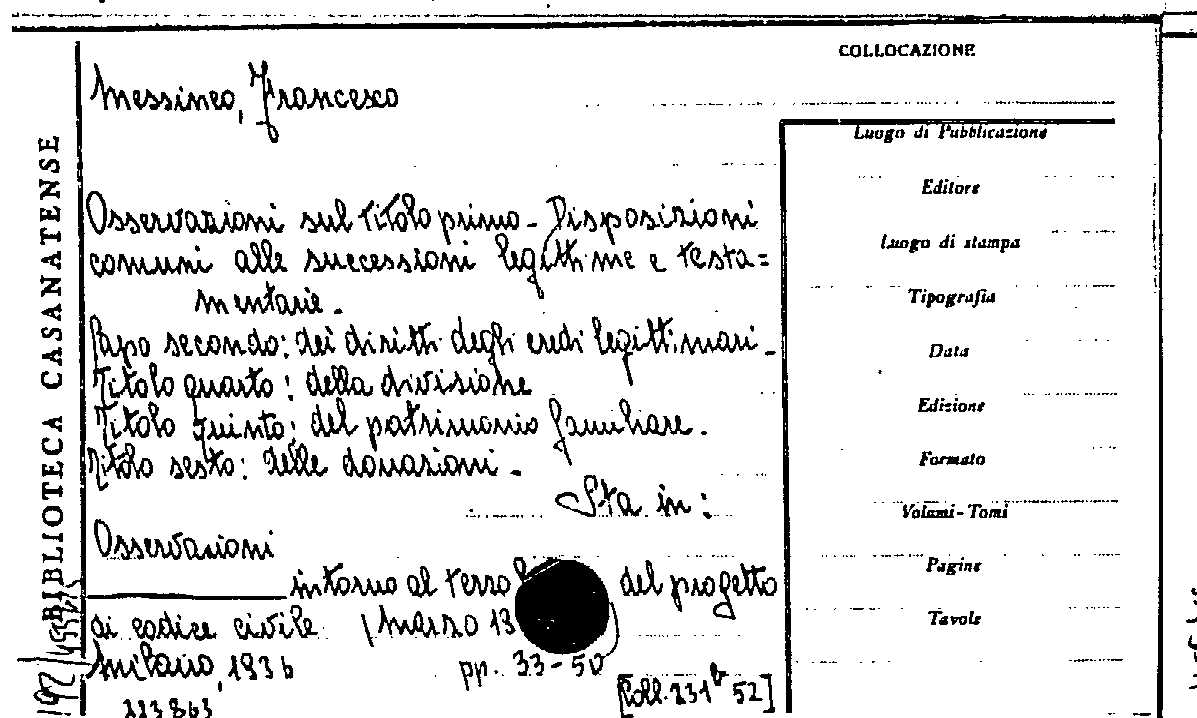 COLLOCAZIONE
Messineo, Francesco
Luogo di Pubblicazione
Editore
Luogo di stampa
Tipografia
Data
Edizione
Formato
Volumi - Tomi
Pagine
Tavole
BIBLIOTECA CASANATENSE
Osservazioni sul titolo primo - Disposizioni
comuni alle successioni legittime e testa=
mentarie.
Capo secondo: dei diritti degli eredi legittimari -
Titolo quarto: della divisione
Titolo quinto: del patrimonio familiare.
Titolo sesto: delle donazioni -
Sta in:
Osservazioni
intorno al terzo del progetto
di codice civile (marzo 19
Milano, 1936 pp. 33-50
[Coll. 231 b 52]